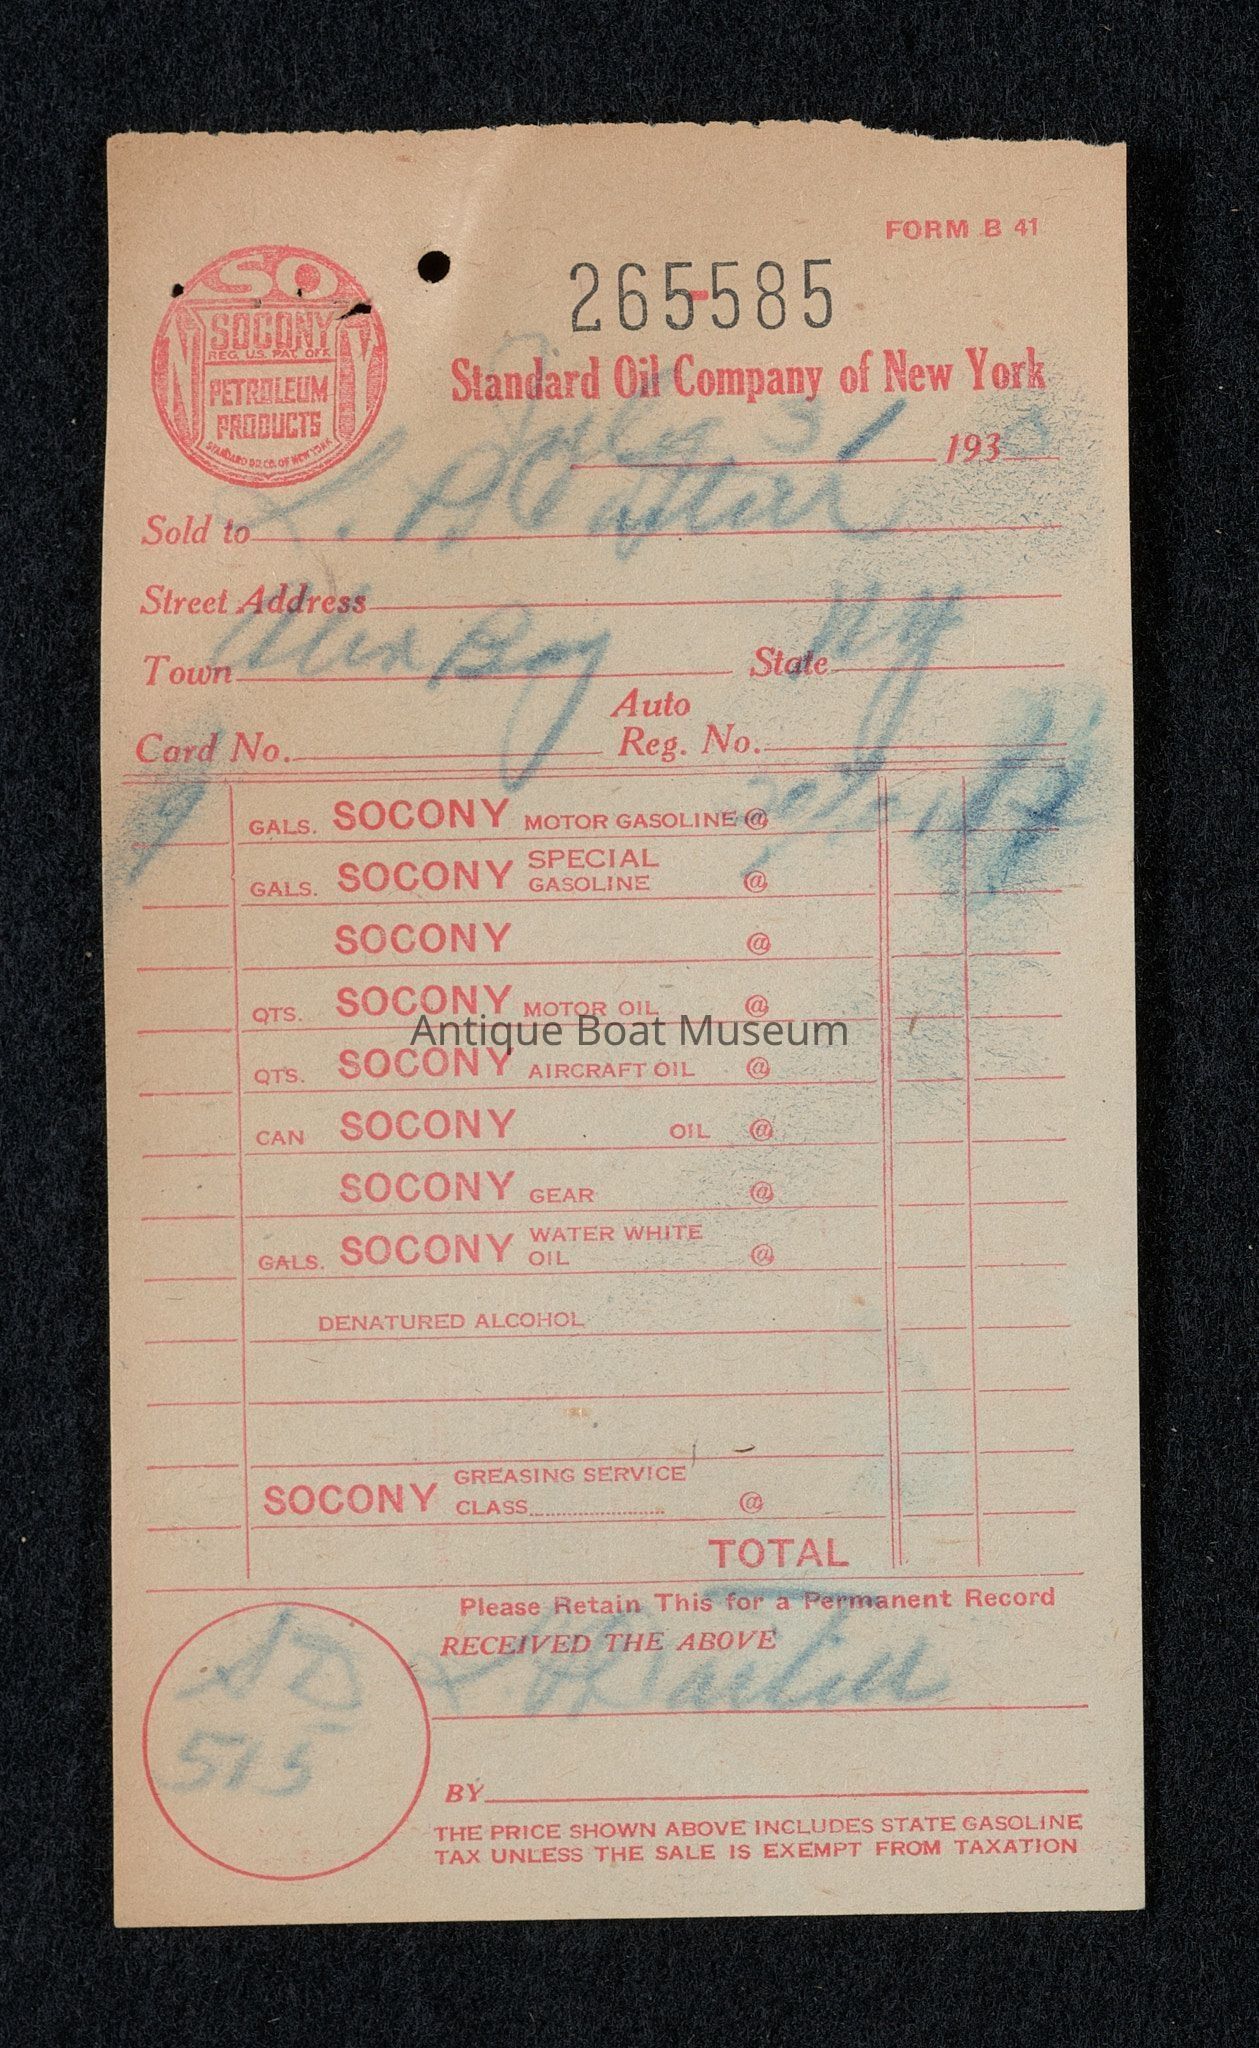 FORM B 41
SO
SOCONY
REG. U.S. PAT. OFF.
PETROLEUM
PRODUCTS
STANDARD OIL CO. OF NEW YORK
265-585
Standard Oil Company of New York
July 31 193
Sold to L. H.
Street Address
Town Alex Bay State NY
Card No. Auto Reg. No.
9 GALS. SOCONY MOTOR GASOLINE @
GALS. SOCONY SPECIAL GASOLINE @
SOCONY @
QTS. SOCONY MOTOR OIL @
Antique Boat Museum
QTS. SOCONY AIRCRAFT OIL @
CAN SOCONY OIL @
SOCONY GEAR @
GALS. SOCONY WATER WHITE OIL @
DENATURED ALCOHOL
SOCONY GREASING SERVICE CLASS @
TOTAL
Please Retain This for a Permanent Record
RECEIVED THE ABOVE
L. H.
515
BY
THE PRICE SHOWN ABOVE INCLUDES STATE GASOLINE
TAX UNLESS THE SALE IS EXEMPT FROM TAXATION